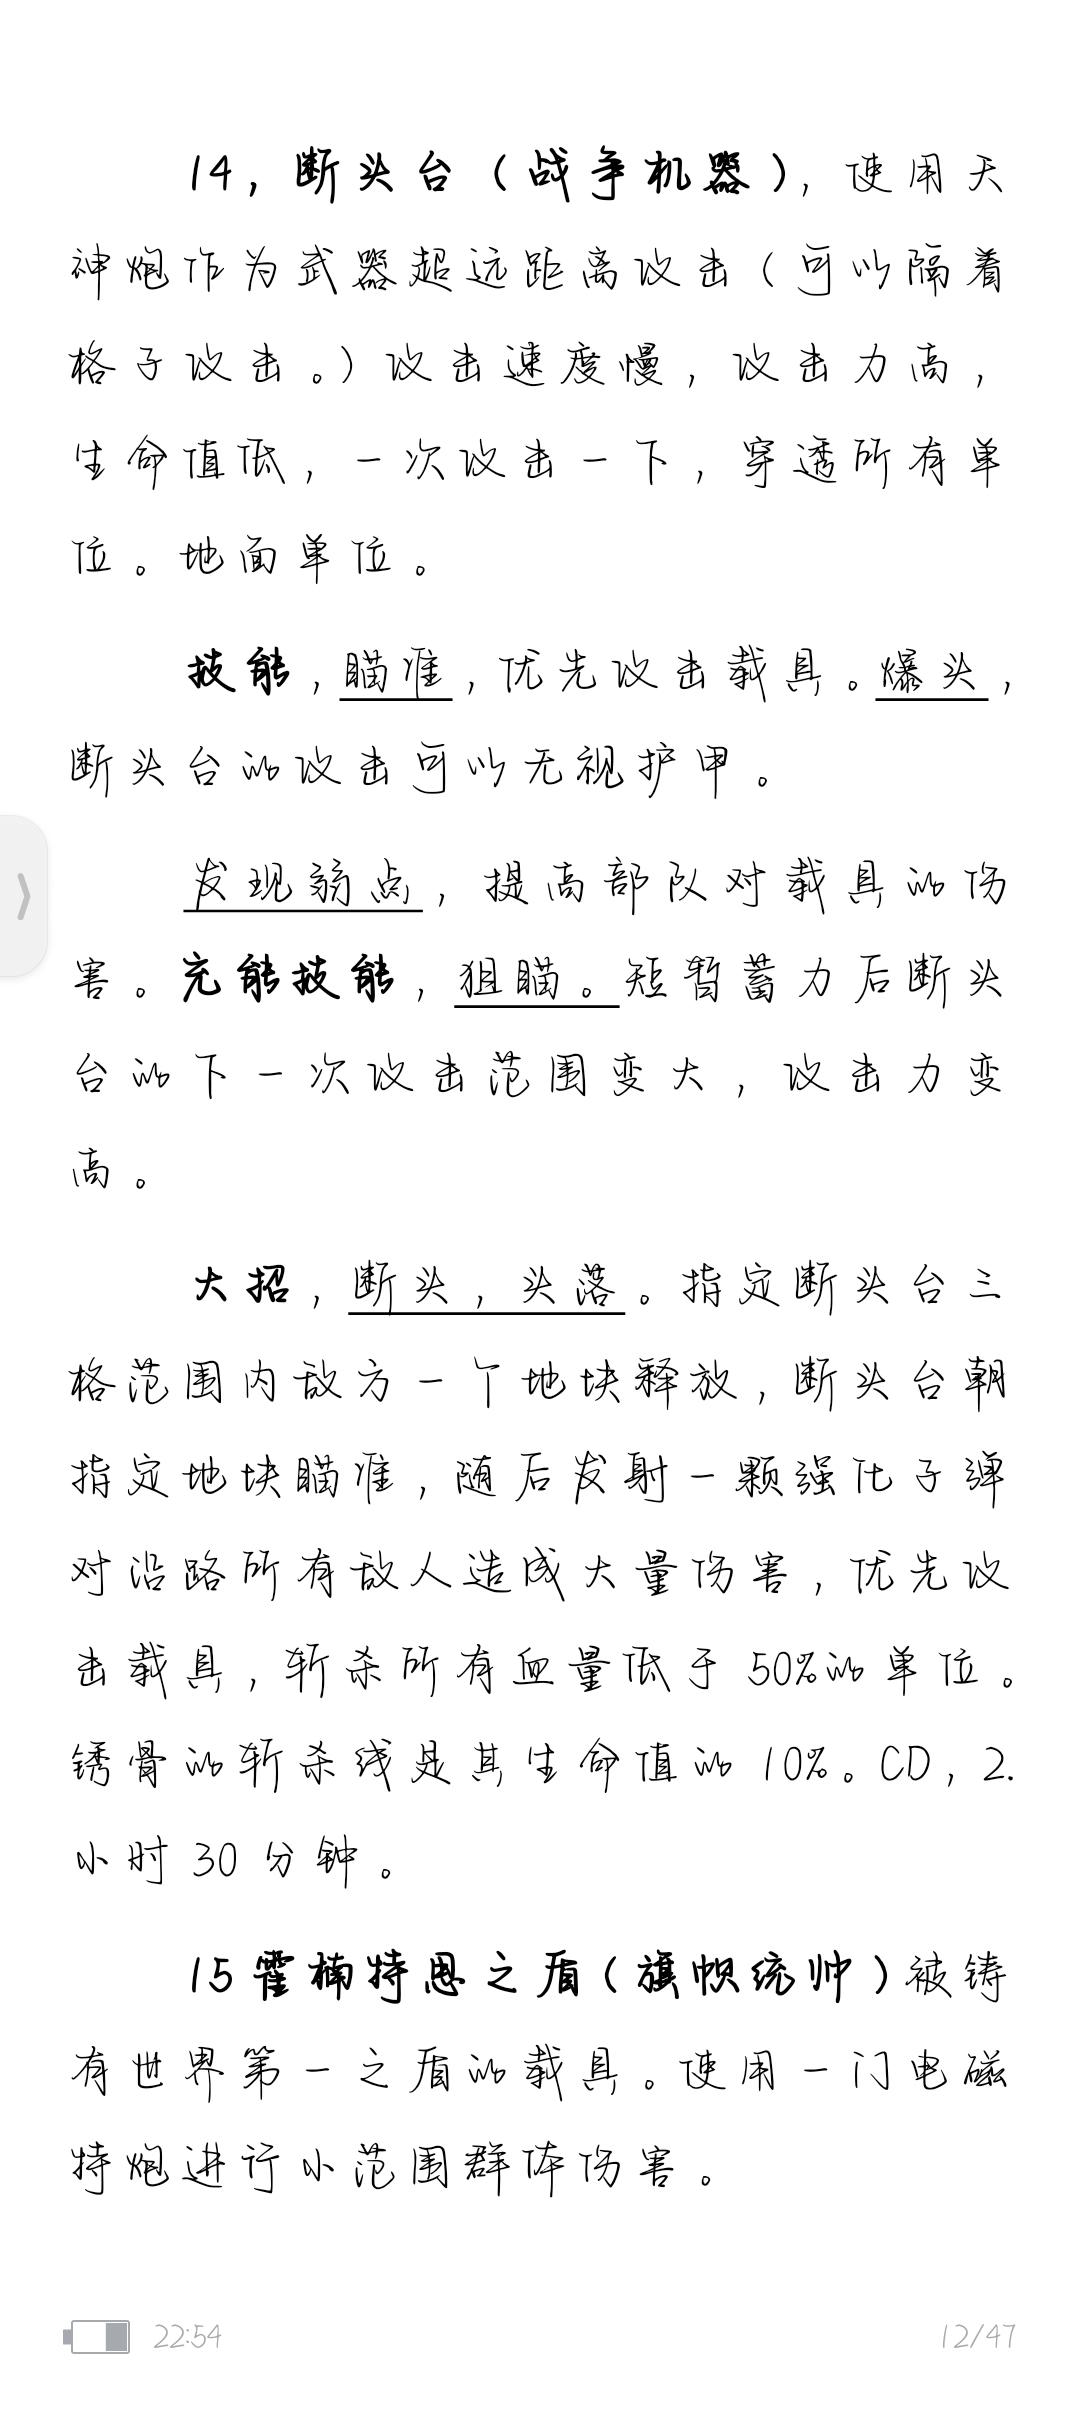 14，断头台（战争机器），使用天
神炮作为武器超远距离攻击（可以隔着
格子攻击。）攻击速度慢，攻击力高，
生命值低，一次攻击一下，穿透所有单
位。地面单位。
技能，瞄准，优先攻击载具。爆头，
断头台的攻击可以无视护甲。
发现弱点，提高部队对载具的伤
害。充能技能，狙瞄。短暂蓄力后断头
台的下一次攻击范围变大，攻击力变
高。
大招，断头，头落。指定断头台三
格范围内敌方一个地块释放，断头台朝
指定地块瞄准，随后发射一颗强化子弹
对沿路所有敌人造成大量伤害，优先攻
击载具，斩杀所有血量低于50%的单位。
锈骨的斩杀线是其生命值的10%。CD，2.
小时30分钟。
15霍楠特恩之盾（旗帜统帅）被铸
有世界第一之盾的载具。使用一门电磁
特炮进行小范围群体伤害。
22:54
12/47